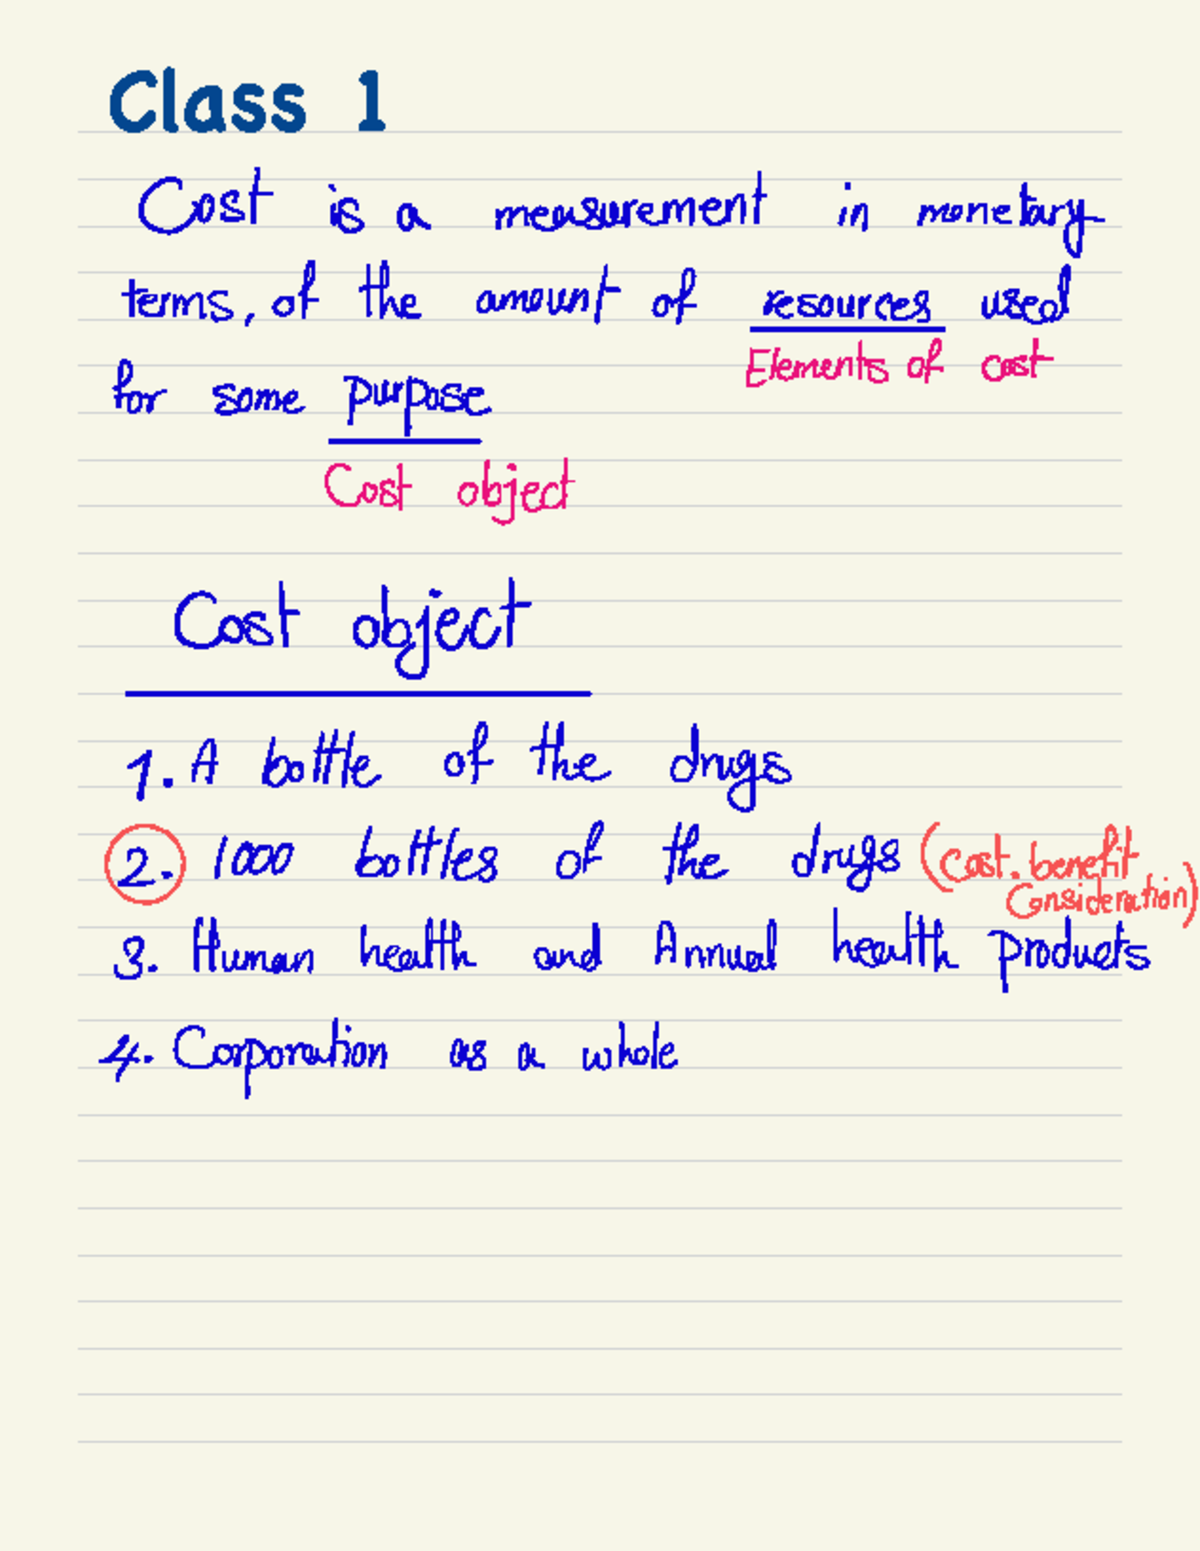 Class 1
Cost is a measurement in monetary
terms, of the amount of resources used
Elements of cost
for some purpose
Cost object
Cost object
1. A bottle of the drugs
2. 1000 bottles of the drugs (cost. benefit
Consideration)
3. Human health and Annual health products
4. Corporation as a whole